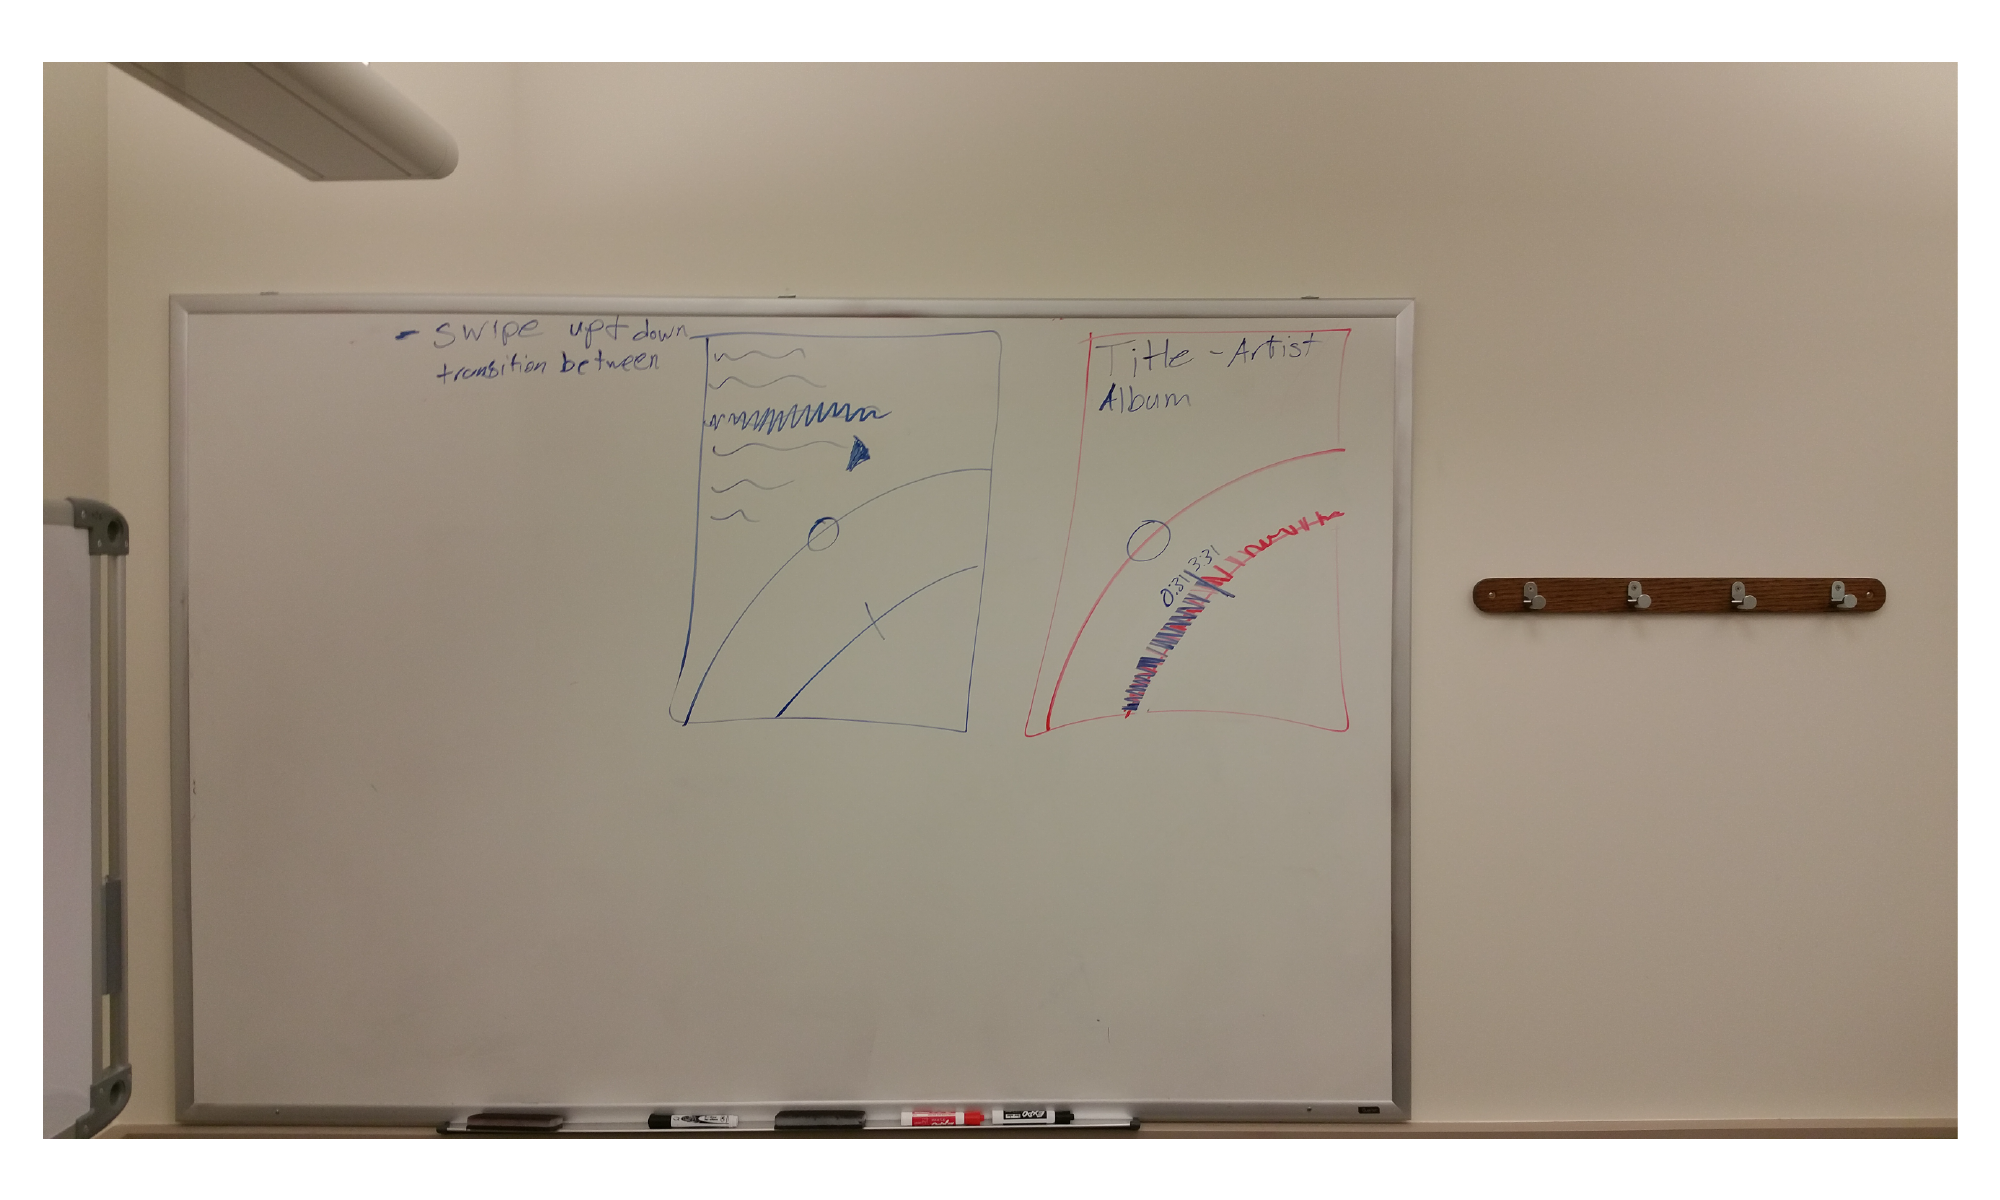 - Swipe up + down
transition between
Title - Artist
Album
0:31/3:31
EXPO